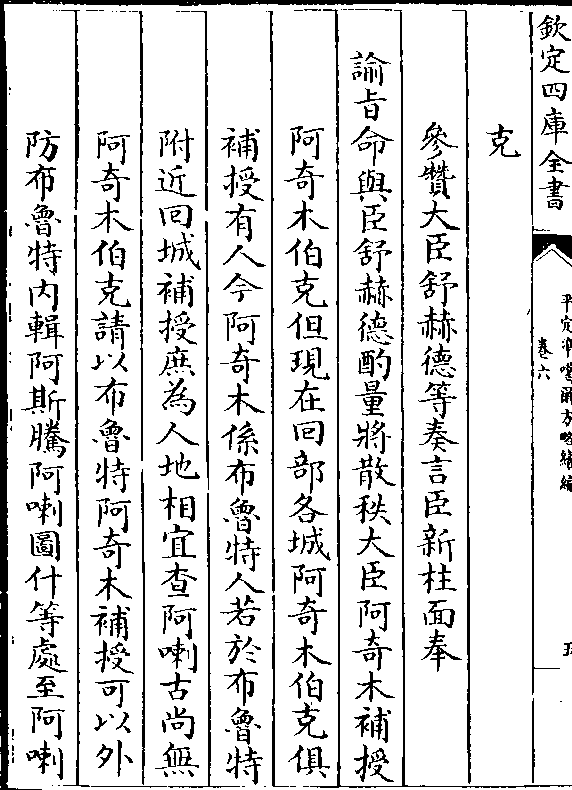 欽定四庫全書
平定準噶爾方略續編
卷六
五
克
參贊大臣舒赫德等奏言臣新柱面奉
諭旨命與臣舒赫德酌量將散秩大臣阿奇木補授
阿奇木伯克但現在回部各城阿奇木伯克俱
補授有人今阿奇木係布魯特人若於布魯特
附近回城補授庶為人地相宜查阿喇古尚無
阿奇木伯克請以布魯特阿奇木補授可以外
防布魯特内輯阿斯騰阿喇圖什等處至阿喇